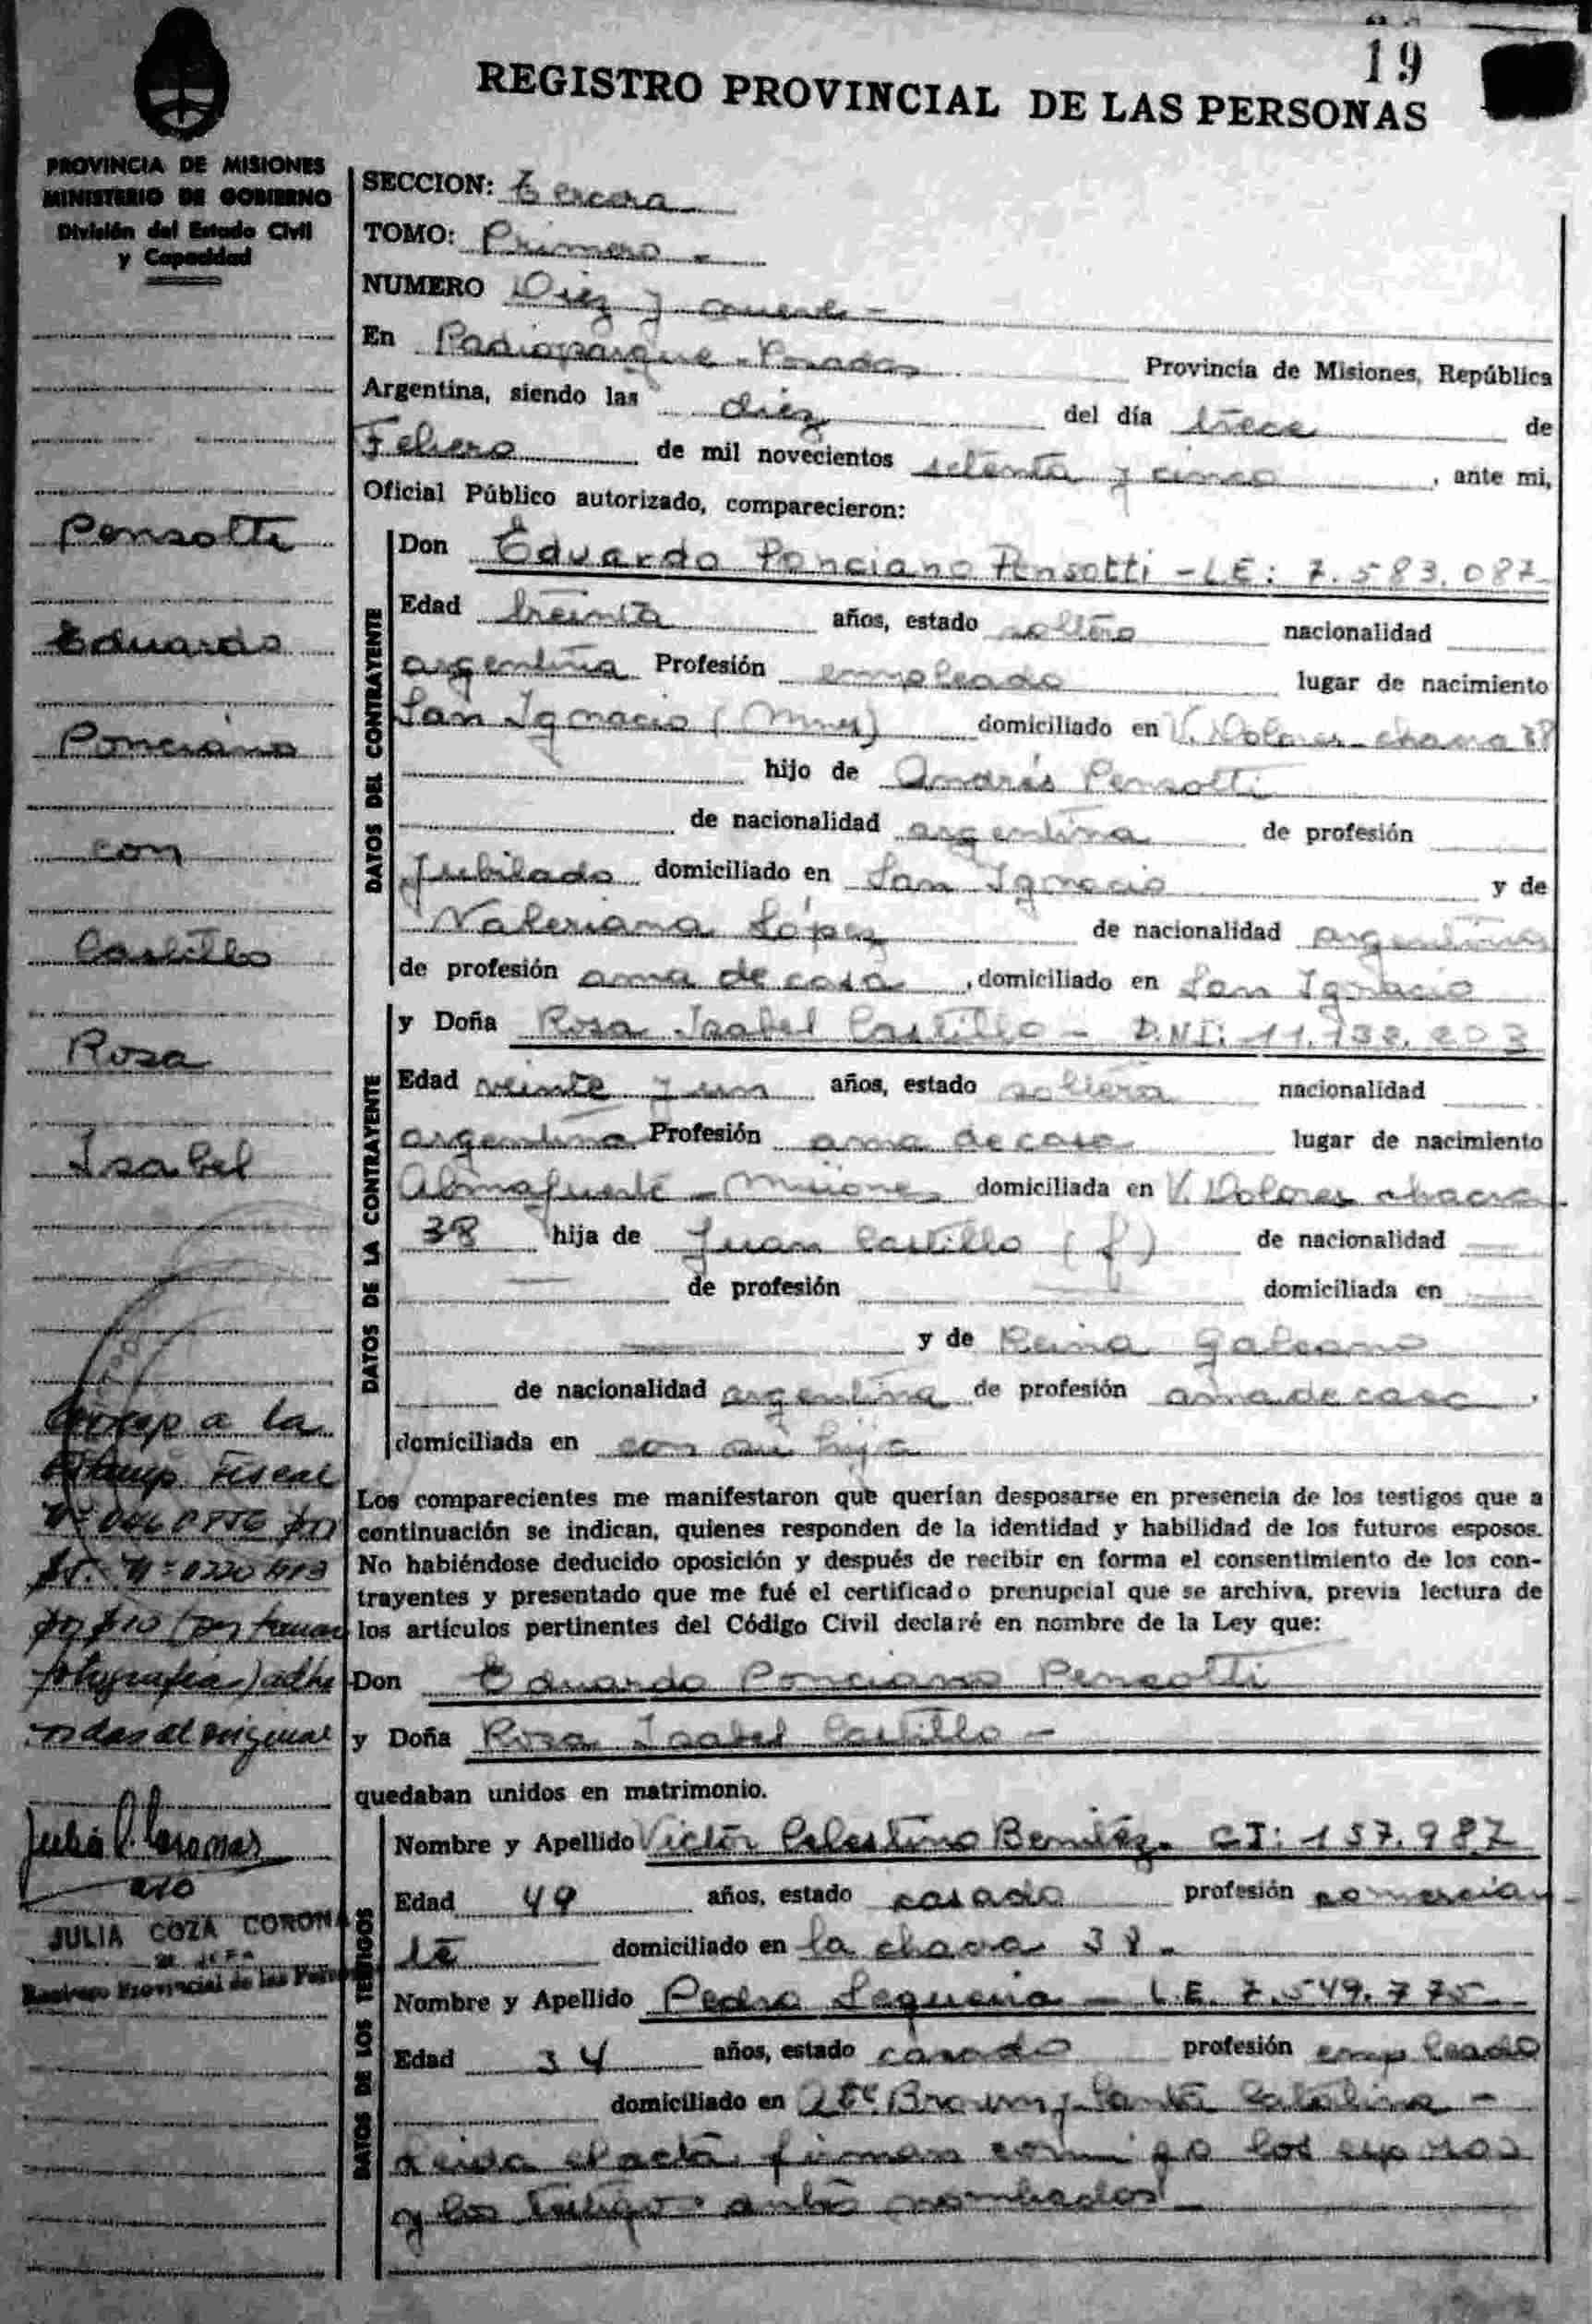 19
REGISTRO PROVINCIAL DE LAS PERSONAS
PROVINCIA DE MISIONES
MINISTERIO DE GOBIERNO
División del Estado Civil
y Capacidad
Pensotti
Eduardo
Ponciano
con
Castillo
Rosa
Isabel
a la
Estamp. Fiscal
adhe
ridas al original
JULIA COZA CORONA
Registro Provincial de las
SECCION: Tercera
TOMO: Primero -
NUMERO Diez y
En Radioparque - Posadas Provincia de Misiones, República
Argentina, siendo las diez del día trece de
Febrero de mil novecientos setenta y cinco, ante mi,
Oficial Público autorizado, comparecieron:
DATOS DEL CONTRAYENTE
Don Eduardo Ponciano Pensotti - LE: 7.583.087
Edad treinta años, estado soltero nacionalidad
argentina Profesión empleado lugar de nacimiento
San Ignacio (Mnes) domiciliado en V. Dolores - chacra 38
hijo de Andrés Pensotti
de nacionalidad argentina de profesión
Jubilado domiciliado en San Ignacio y de
Valeriana López de nacionalidad argentina
de profesión ama de casa, domiciliado en San Ignacio
DATOS DE LA CONTRAYENTE
y Doña Rosa Isabel Castillo - D.N.I: 11.138.203
Edad veinte y un años, estado soltera nacionalidad
argentina Profesión ama de casa lugar de nacimiento
Almafuerte - Misiones domiciliada en V. Dolores chacra
38 hija de Juan Castillo (f) de nacionalidad
de profesión domiciliada en
y de Reina Galeano
de nacionalidad argentina de profesión ama de casa,
domiciliada en con su hija
Los comparecientes me manifestaron que querían desposarse en presencia de los testigos que a
continuación se indican, quienes responden de la identidad y habilidad de los futuros esposos.
No habiéndose deducido oposición y después de recibir en forma el consentimiento de los con-
trayentes y presentado que me fué el certificado prenupcial que se archiva, previa lectura de
los artículos pertinentes del Código Civil declaré en nombre de la Ley que:
Don Eduardo Ponciano Pensotti
y Doña Rosa Isabel Castillo -
quedaban unidos en matrimonio.
DATOS DE LOS TESTIGOS
Nombre y Apellido Victor Celestino Benitez. CI: 157.987
Edad 49 años, estado casado profesión comercian-
te domiciliado en la chacra 38.
Nombre y Apellido Pedro Sequeira - L.E. 7.549.775
Edad 34 años, estado casado profesión empleado
domiciliado en Alte. Brown y Santa Catalina -
Leida el acta, firman conmigo los esposos
y los testigos antes nombrados